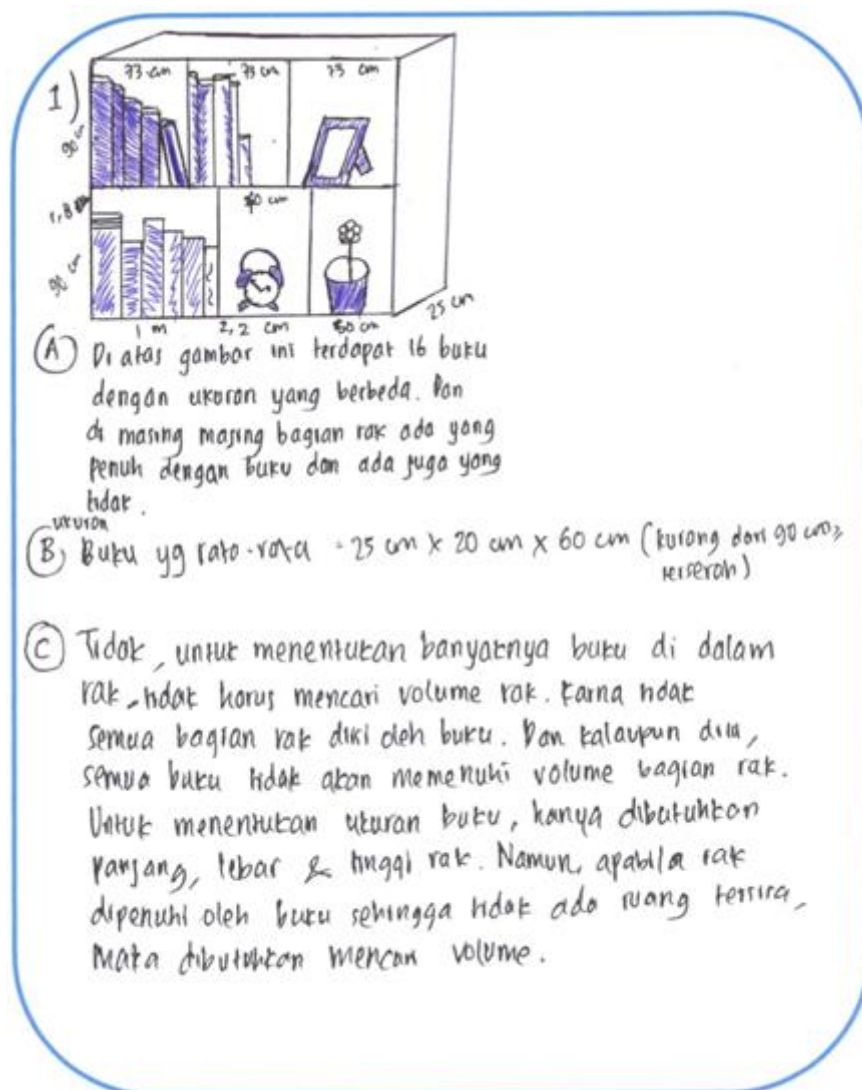 1)
73 cm 73 cm 73 cm
90 cm
1,8
60 cm
90 cm
1 m 2,2 cm 60 cm 25 cm
A Di atas gambar ini terdapat 16 buku
dengan ukuran yang berbeda. Dan
di masing masing bagian rak ada yang
penuh dengan buku dan ada juga yang
tidak.
ukuran
B, Buku yg rata-rata = 25 cm x 20 cm x 60 cm (kurang dari 90 cm,
terserah)
C Tidak, untuk menentukan banyaknya buku di dalam
rak, tidak harus mencari volume rak. Karna tidak
semua bagian rak diisi oleh buku. Dan kalaupun diisi,
semua buku tidak akan memenuhi volume bagian rak.
Untuk menentukan ukuran buku, hanya dibutuhkan
panjang, lebar & tinggi rak. Namun, apabila rak
dipenuhi oleh buku sehingga tidak ada ruang tersisa,
maka dibutuhkan mencari volume.